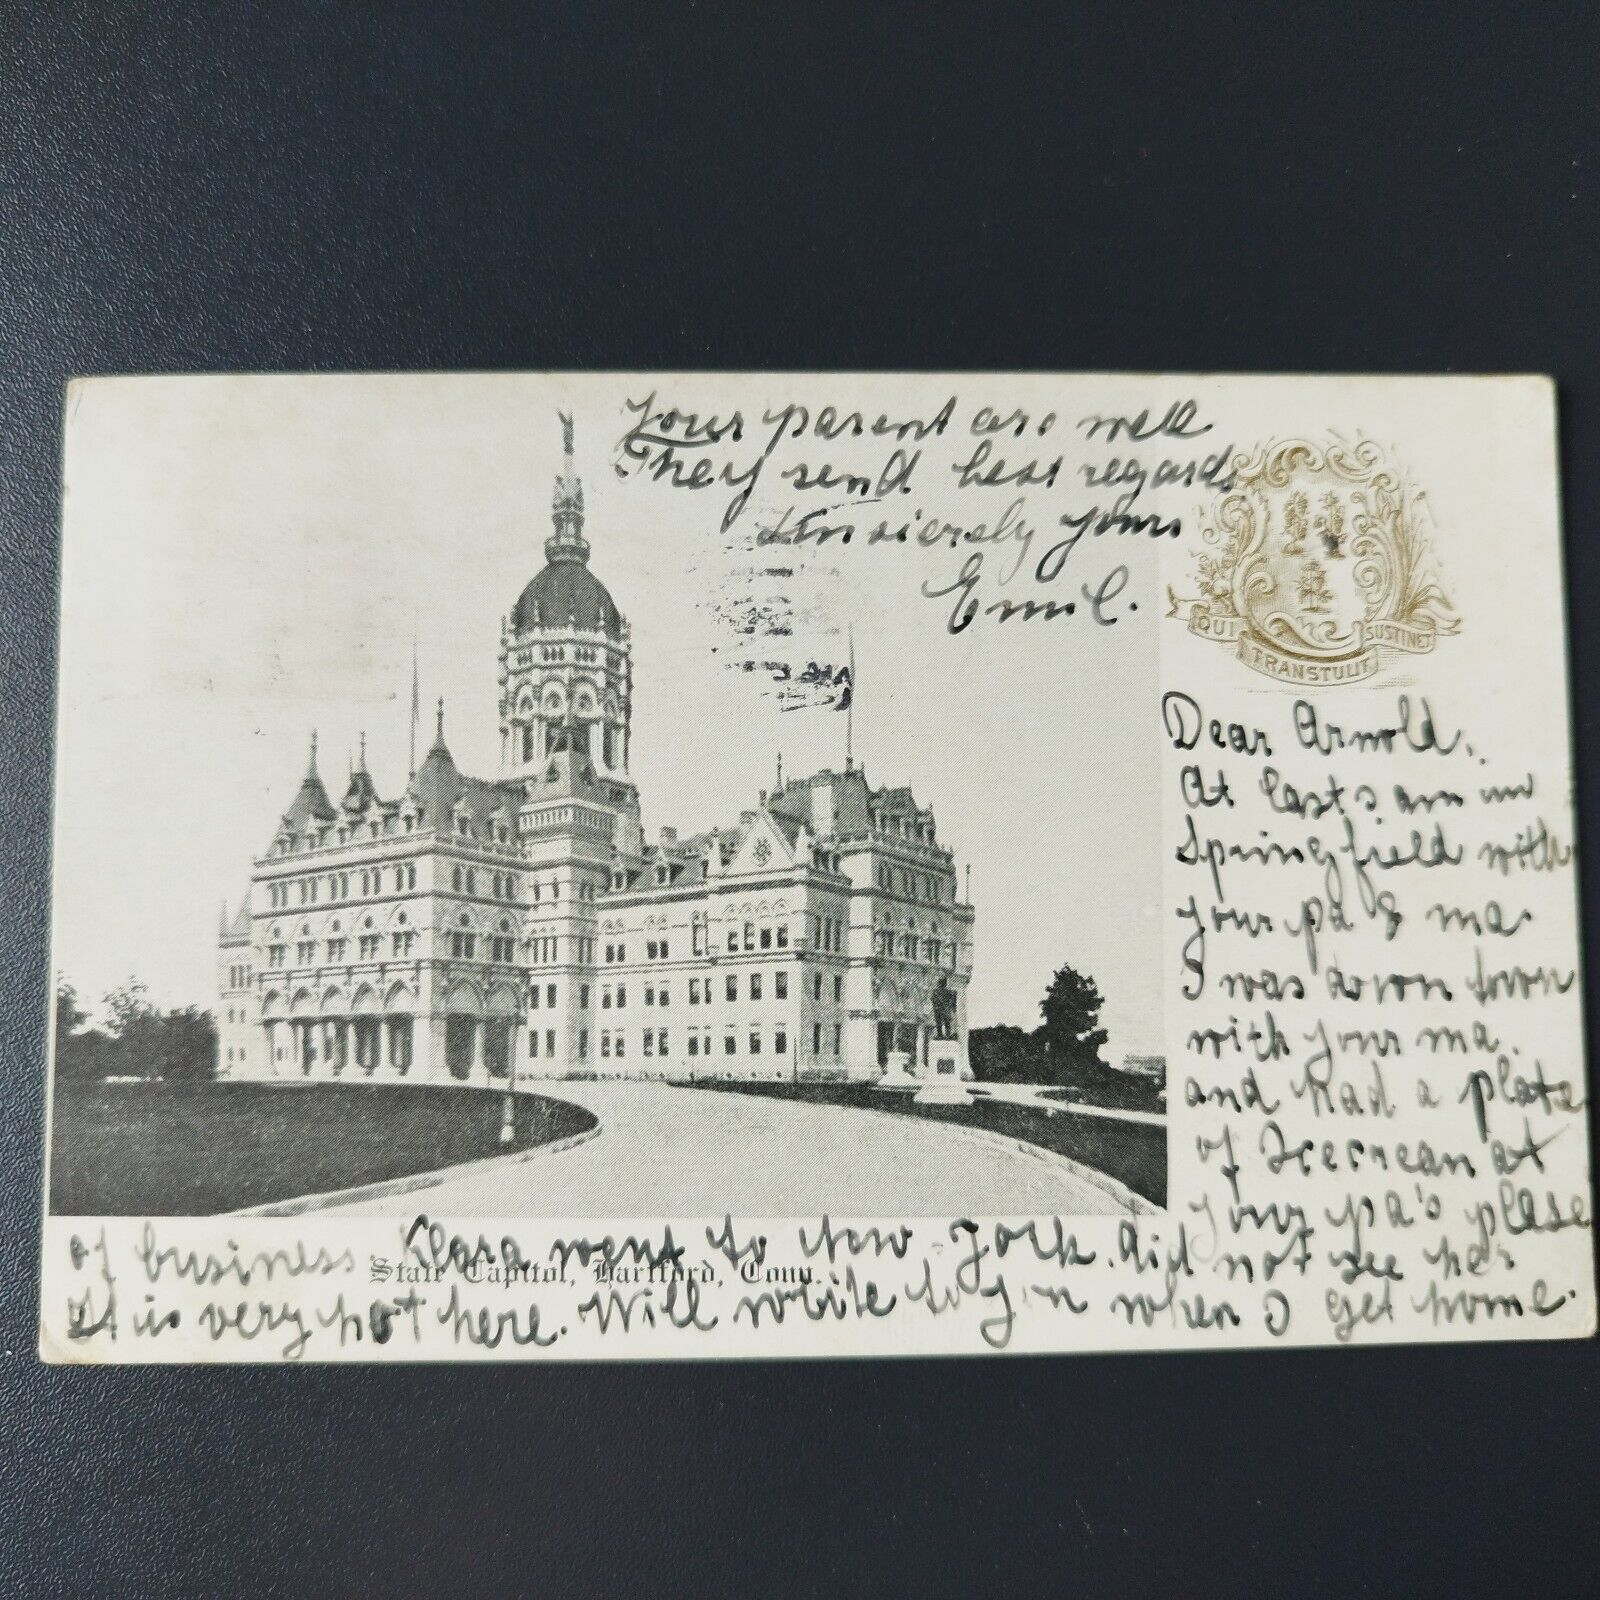 Dear Arnold.
At last I am in
Springfield with
your pa & ma.
I was down town
with your ma.
and had a plate
of Icecream at
your pa's plase
of business. Klara went to New-York. did not see her
It is very hot here. Will write to you when I get home.
Your parent are well
They send best regards
Sinsierely yours
Emil.
QUI TRANSTULIT SUSTINET
State Capitol, Hartford, Conn.